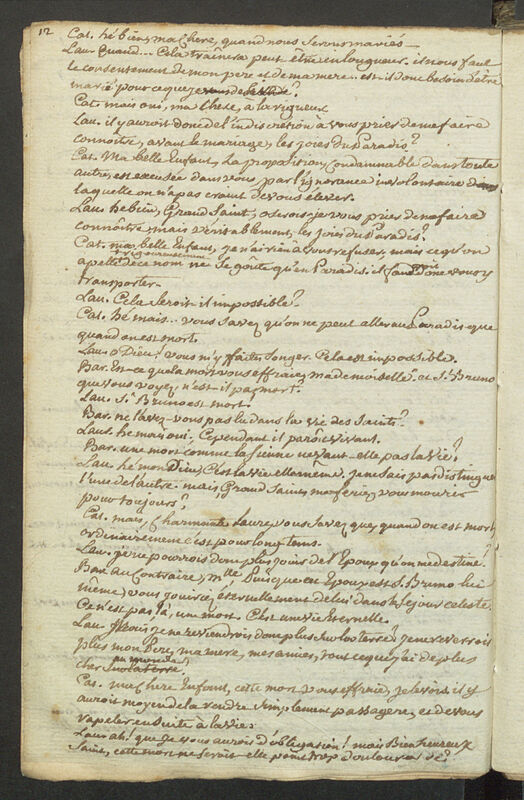 12
Cat. hé bien, ma chere, quand nous serons mariés
Lau. Quand... Cela trainera peut être en longueur. il nous faut
le consentement de mon pere et de ma mere. est-il donc besoin d'être
marié pour ce que je
Cat. mais oui, ma chere, a la rigueur
Lau. il y auroit donc de l'indiscrétion à vous prier de me faire
connoître, avant le mariage, les joies du Paradis?
Cat. Ma belle Enfant, la proposition, condamnable dans toute
autre, est excusée dans vous par l'ignorance involontaire dans
laquelle on n'a pas craint de vous élever.
Lau. hé bien, Grand Saint, oserois-je vous prier de me faire
connoître, mais véritablement, les joies du Paradis?
Cat. ma belle Enfant, je n'ai rien à vous refuser, mais ce qu'on
rigoureusement
apelle de ce nom ne se goûte qu'en Paradis. il faut donc vous y
transporter.
Lau. Cela seroit-il impossible?
Cat. hé mais... vous savez qu'on ne peut aller au Paradis que
quand on est mort.
Lau. o Dieu! vous m'y faites songer. Cela est impossible.
Bar. Est-ce que la mort vous effraie, mademoiselle? et St. Bruno
que vous voyez, n'est-il pas mort?
Lau. St. Bruno est mort.
Bar. ne l'avez-vous pas lu dans la vie des Saints?
Lau. hé mais oui, Cependant il paroit vivant.
Bar. une mort comme la sienne ne vaut-elle pas la vie?
Lau. hé mon Dieu, C'est la vie elle même, je ne sais pas distinguer
l'une de l'autre. mais Grand Saint, me feriez vous mourir
pour toujours?
Cat. mais, Charmante Laure, vous savez que, quand on est mort
ordinairement c'est pour long-tems.
Lau. je ne pourrois donc plus jouir de l'Epoux qu'on me destine?
Bar. Au Contraire, Mlle. Puisque cet Epoux est St. Bruno lui
même, vous jouirez éternellement de lui dans le séjour céleste.
Ce n'est pas là, une mort. C'est une vie Eternelle.
Lau. je ne reviendrois donc plus sur la terre? je ne reverrois
plus mon Pere, ma mere, mes amies, tout ce que j'ai de plus
au monde
cher sur la terre
Cat. ma chere Enfant, cette mort vous effraie, je le vois. il y
auroit moyen de la rendre simplement passagere, et de vous
rapeler ensuite à la vie.
Lau. ah! que je vous aurois d'obligation! mais Bienheureux
Saint, cette mort ne seroit-elle point trop douloureuse?